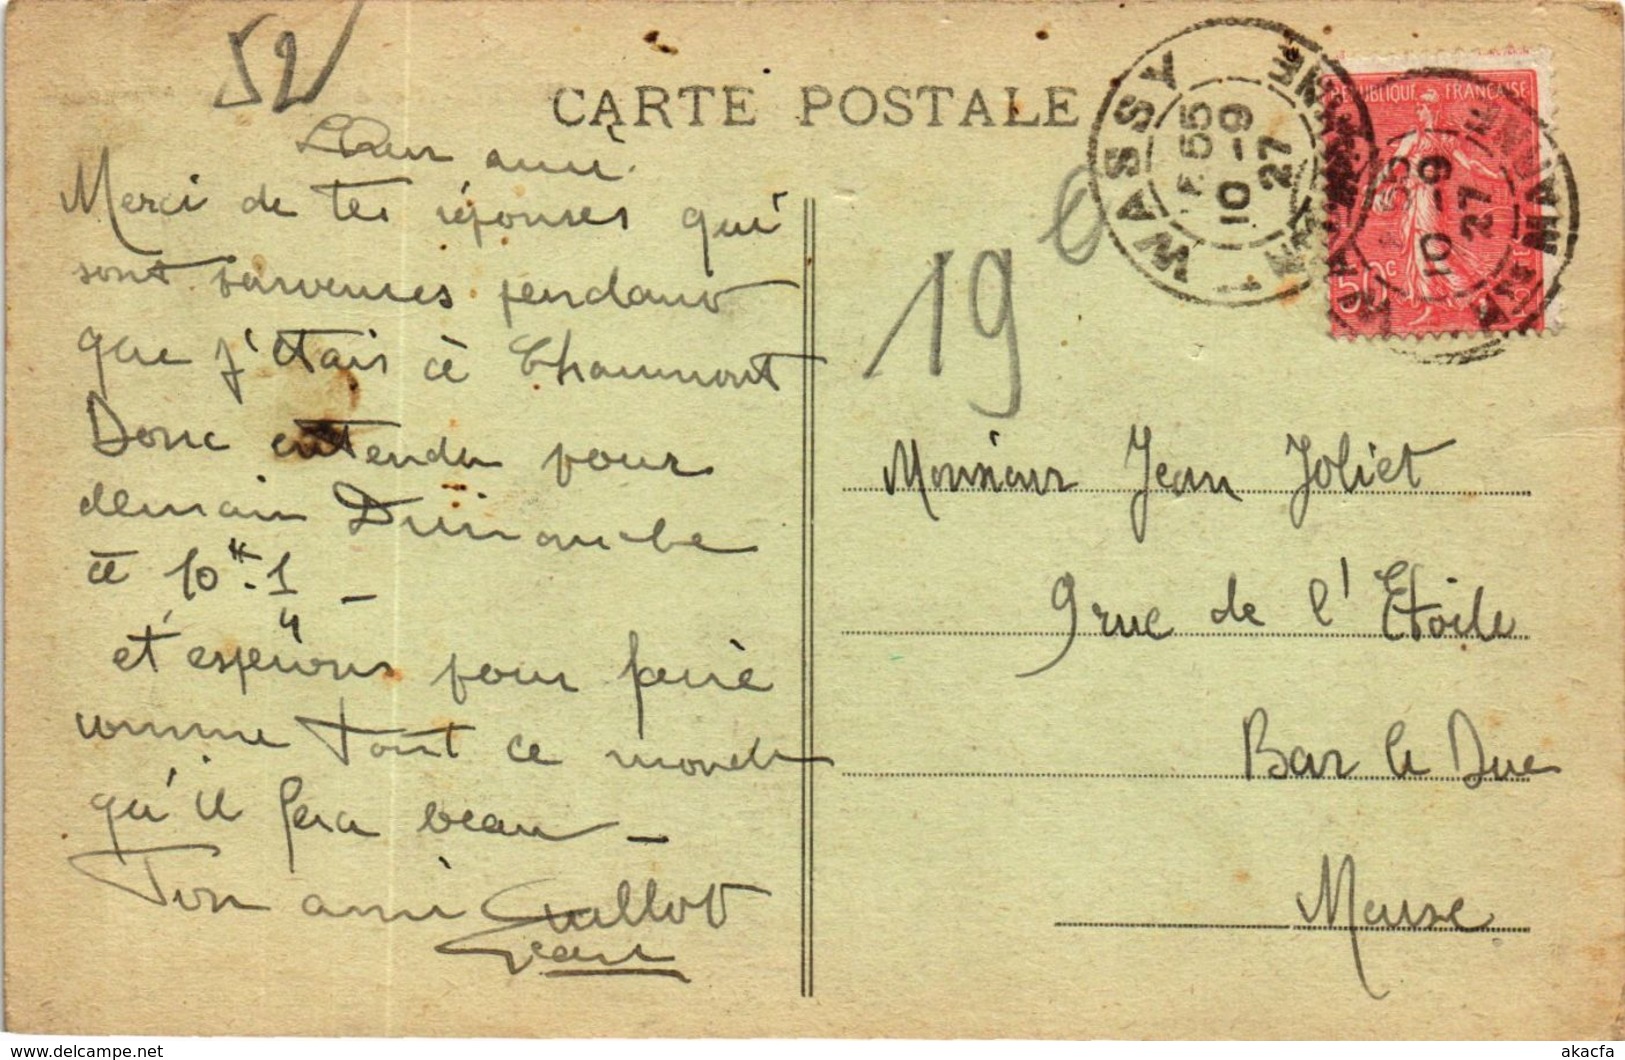 52
CARTE POSTALE
Cher ami.
Merci de tes réponses qui
sont parvenues pendant
que j'étais à Chaumont
Donc entendu pour
demain Dimanche
à 10H-1 -
et espérons pour ferié
comme tout ce monde
qu'il fera beau -
Ton ami Guillot
Jean
19 e
WASSY
10-9
27
HTE MARNE
REPUBLIQUE FRANÇAISE
50c
10-9
27
Monsieur Jean Joliet
9 rue de l'Etoile
Bar le Duc
Meuse.
akacfa
delcampe.net